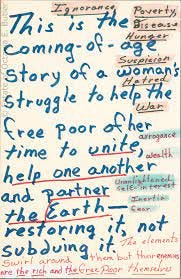 Ignorance
Poverty,
Disease
Hunger
Suspicion
Hatred
War
arrogance
wealth
Unenlightened
Self-interest
Inertia
fear
This is the
coming-of-age
story of a woman's
struggle to help the
free poor of her
time to unite,
help one another
and partner
the Earth—
restoring it, not
subduing it.
The elements
Swirl around them but their enemies
are the rich and the free poor themselves
Octavia E. Butler